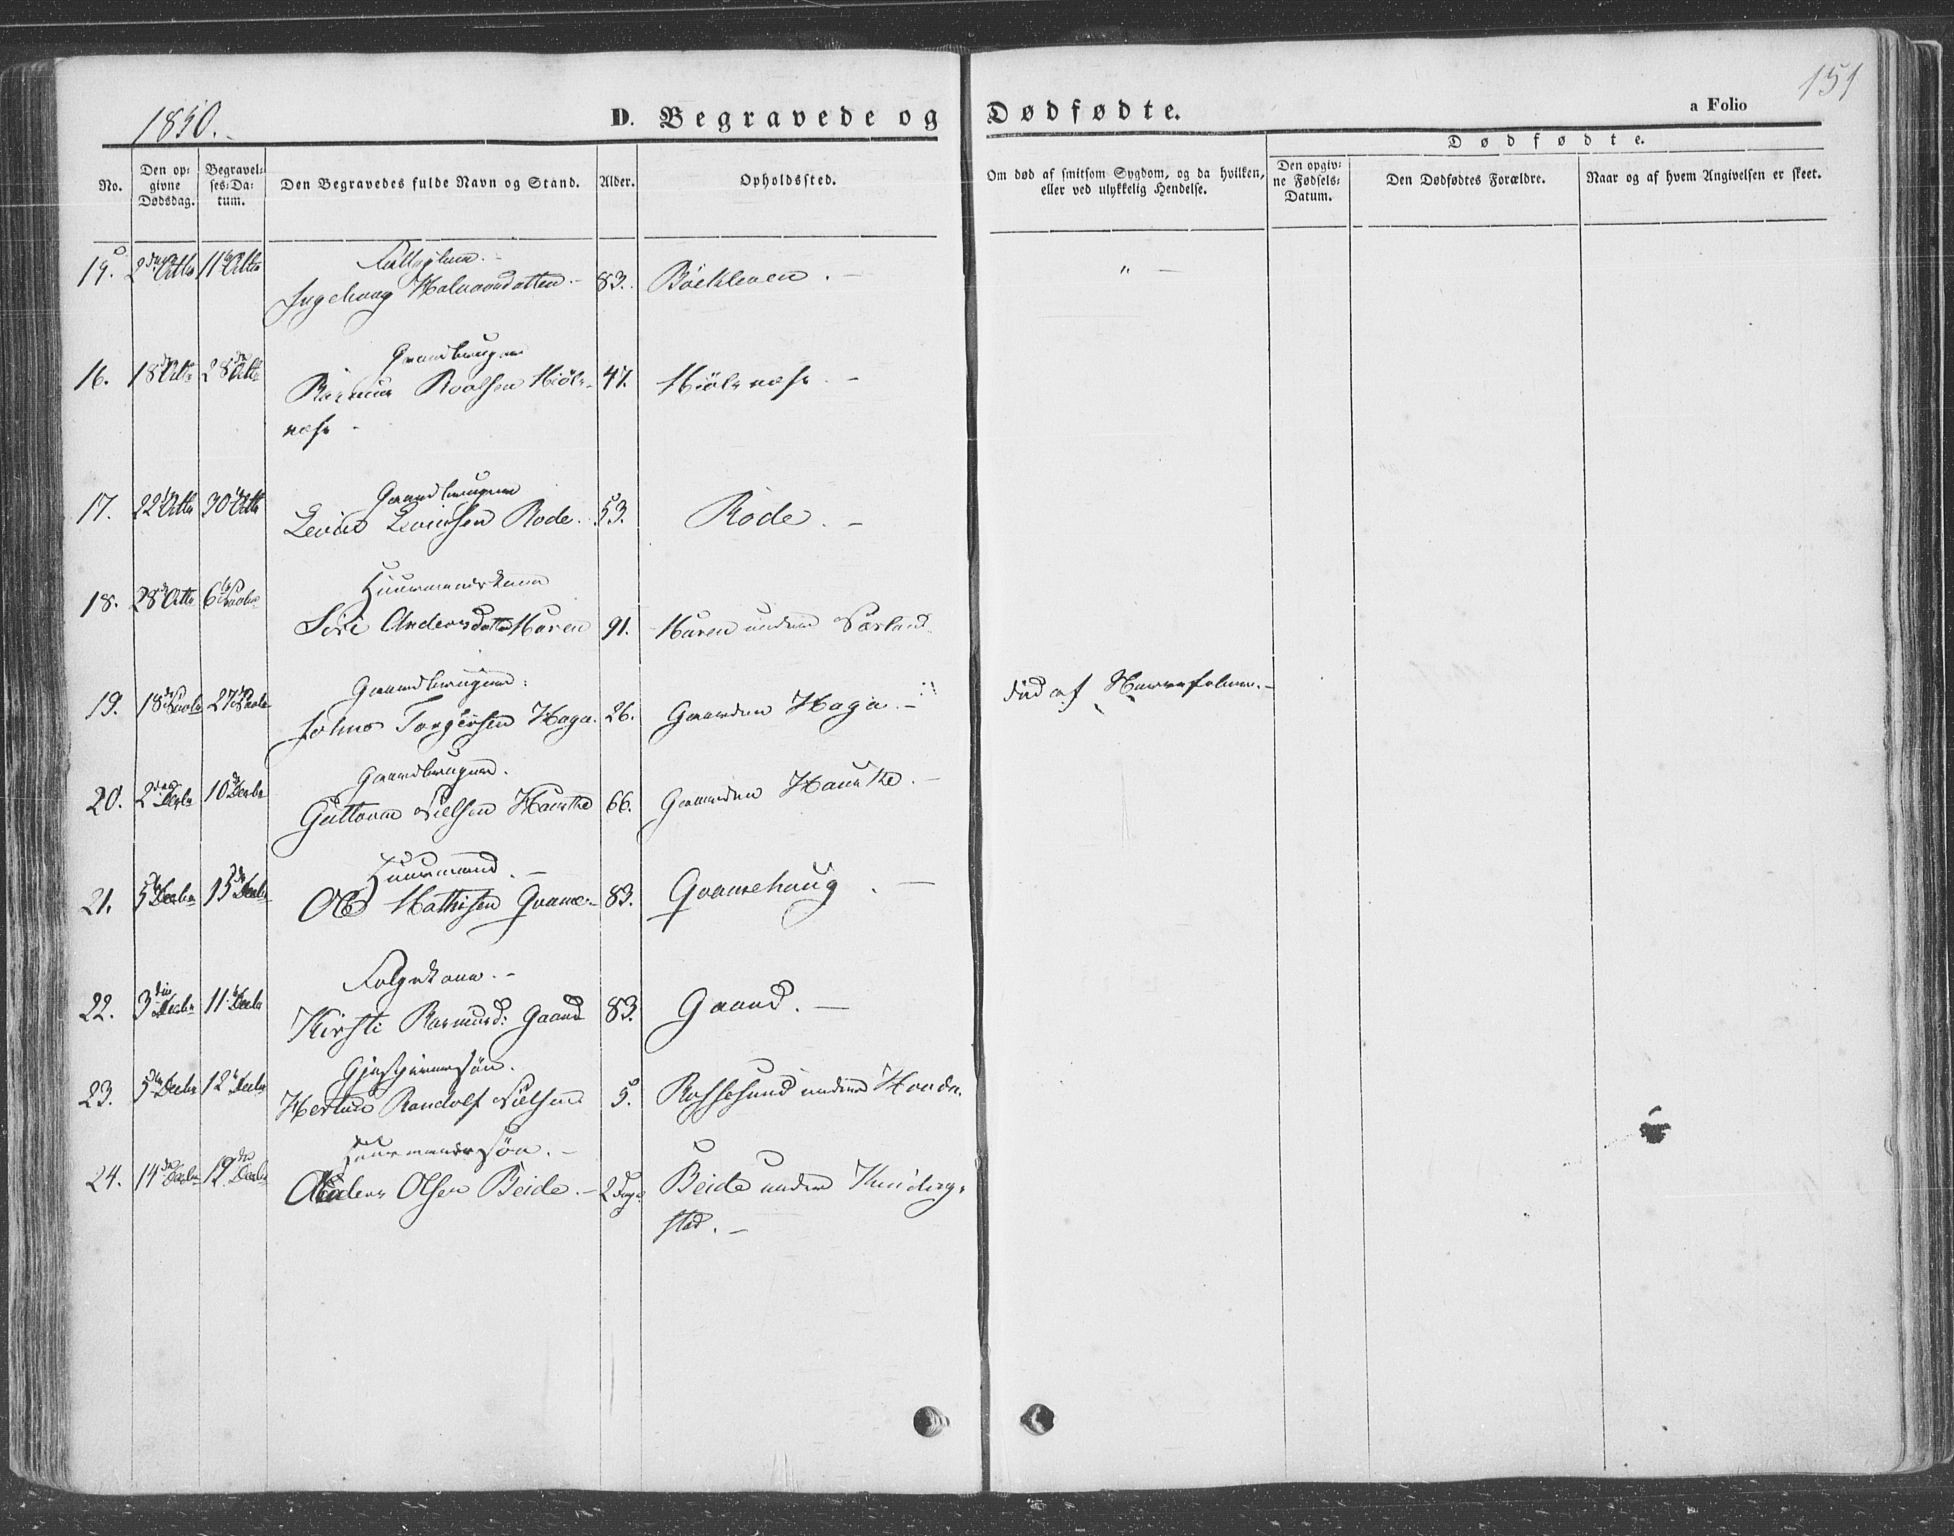 1850.
D. Begravede og Dødfødte.
a Folio
151
No.
Den op-
givne
Dødsdag.
Begravel-
ses-Da-
tum.
Den Begravedes fulde Navn og Stand.
Alder.
Opholdssted.
Om død af smitsom Sygdom, og da hvilken,
eller ved ulykkelig Hendelse.
Dødfødte.
Den opgiv-
ne Fødsels-
Datum.
Den Dødfødtes Forældre.
Naar og af hvem Angivelsen er skeet.
15. 2den Octbr 11te Octbr
Ingeborg Halvorsdatter. 83. „
16. 18de Octbr 28de Octbr Gaardbruger
Rasmus Roalsen Hiøls- 47. Hiølsnæse.
næse
17. 22de Octbr 30te Octbr Gaardbruger
Levine Levinsen Rode. 53. Rode.
18. 28de Octbr 6te Novbr Huusmandskone
Siri Andersdatter Haven 91. Haven under
19. 18de Novbr 27de Novbr Gaardbruger.
Johns Torgersen Haga. 26. Gaarden Haga. død af
20. 2den Decbr 10de Decbr Gaardbruger.
Guttorm Nielsen 66. Gaarden
21. 5te Decbr 13de Decbr Huusmand.
Ole Mathisen 83. Qvamehaug.
22. 3die Decbr 11te Decbr Folgekone.
Kirsti Rasmusd: Gaard 83. Gaard.
23. 5te Decbr 12te Decbr Gjestgiversøn.
Randolf Nielsen 5. Røssesund under
24. 14de Decbr 19de Decbr Huusmandssøn.
Anders Olsen Beide. 2 Dage Beide under
sted.